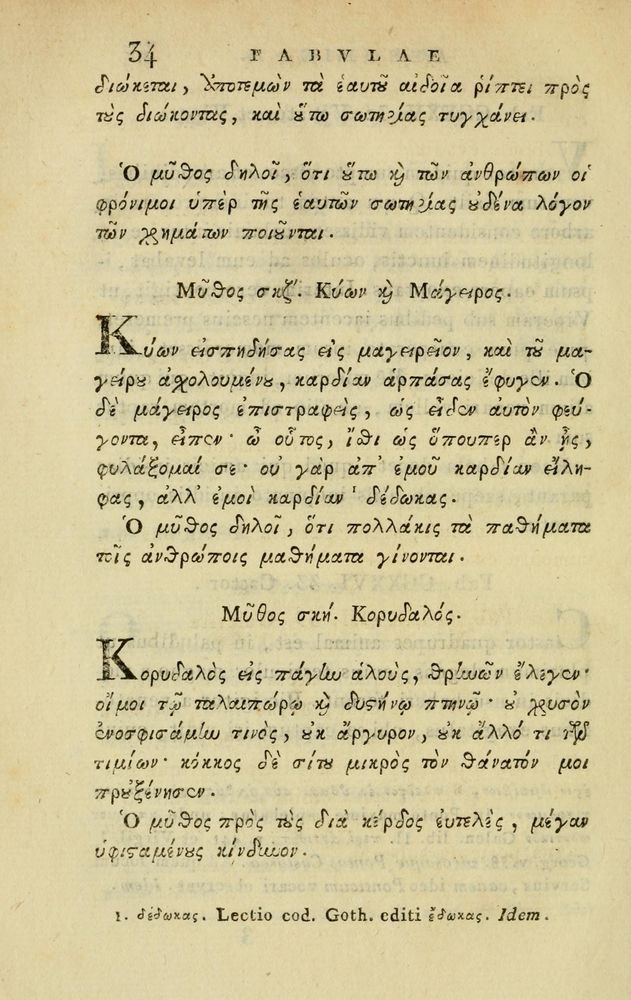 34 FABVLAE
διώκεται, ὑποτεμὼν τὰ ἑαυτοῦ αἰδοῖα ῥίπτει πρὸς
τοὺς διώκοντας, καὶ οὕτω σωτηρίας τυγχάνει.
Ὁ μῦθος δηλοῖ, ὅτι οὕτω καὶ τῶν ἀνθρώπων οἱ
φρόνιμοι ὑπὲρ τῆς ἑαυτῶν σωτηρίας οὐδένα λόγον
τῶν χρημάτων ποιοῦνται.
Μῦθος σκζʹ. Κύων καὶ Μάγειρος.
Κύων εἰσπηδήσας εἰς μαγειρεῖον, καὶ τοῦ μα-
γείρου ἀσχολουμένου, καρδίαν ἁρπάσας ἔφυγεν. Ὁ
δὲ μάγειρος ἐπιστραφεὶς, ὡς εἶδεν αὐτὸν φεύ-
γοντα, εἶπεν· ὦ οὗτος, ἴσθι ὡς ὅπουπερ ἂν ᾖς,
φυλάξομαί σε· οὐ γὰρ ἀπ' ἐμοῦ καρδίαν εἴλη-
φας, ἀλλ' ἐμοὶ καρδίαν ¹ δέδωκας.
Ὁ μῦθος δηλοῖ, ὅτι πολλάκις τὰ παθήματα
τοῖς ἀνθρώποις μαθήματα γίνονται.
Μῦθος σκή. Κορυδαλός.
Κορυδαλὸς εἰς πάγην ἁλοὺς, θρηνῶν ἔλεγεν·
οἴμοι τῷ ταλαιπώρῳ καὶ δυστήνῳ πτηνῷ· οὐ χρυσὸν
ἐνοσφισάμην τινὸς, οὐκ ἄργυρον, οὐκ ἄλλό τι τῶν
τιμίων· κόκκος δὲ σίτου μικρὸς τὸν θάνατόν μοι
προὐξένησεν.
Ὁ μῦθος πρὸς τοὺς διὰ κέρδος ἐυτελὲς, μέγαν
ὑφισταμένους κίνδυνον.
1. δέδωκας. Lectio cod. Goth. editi ἔδωκας. Idem.